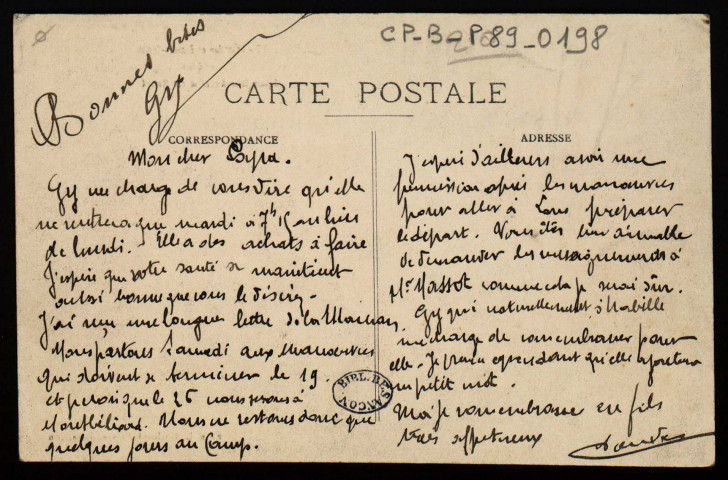 CP-B-P89-0198
Bonnes bises
Gy
CARTE POSTALE
CORRESPONDANCE
ADRESSE
Mon cher Papa.
Gy me charge de vous dire qu'elle
ne rentrera que mardi à 7h15 au lieu
de lundi. Elle a des achats à faire
J'espère que votre santé se maintient
aussi bonne que vous le désirez.
J'ai reçu une longue lettre de la Maman
Nous partons Samedi aux Manoeuvres
qui doivent se terminer le 19.
et je crois que le 26 nous serons à
Montbéliard. Nous ne restons donc que
quelques jours au Camp.
BIBL. BESANÇON
J'espère d'ailleurs avoir une
permission après les manoeuvres
pour aller à Lons préparer
le départ. Vous êtes bien aimable
de demander les renseignements à
Mr Massot comme cela je serai sûr.
Gy qui naturellement s'habille
me charge de vous embrasser pour
elle. Je pense cependant qu'elle ajoutera
un petit mot.
Moi je vous embrasse en fils
très affectueux